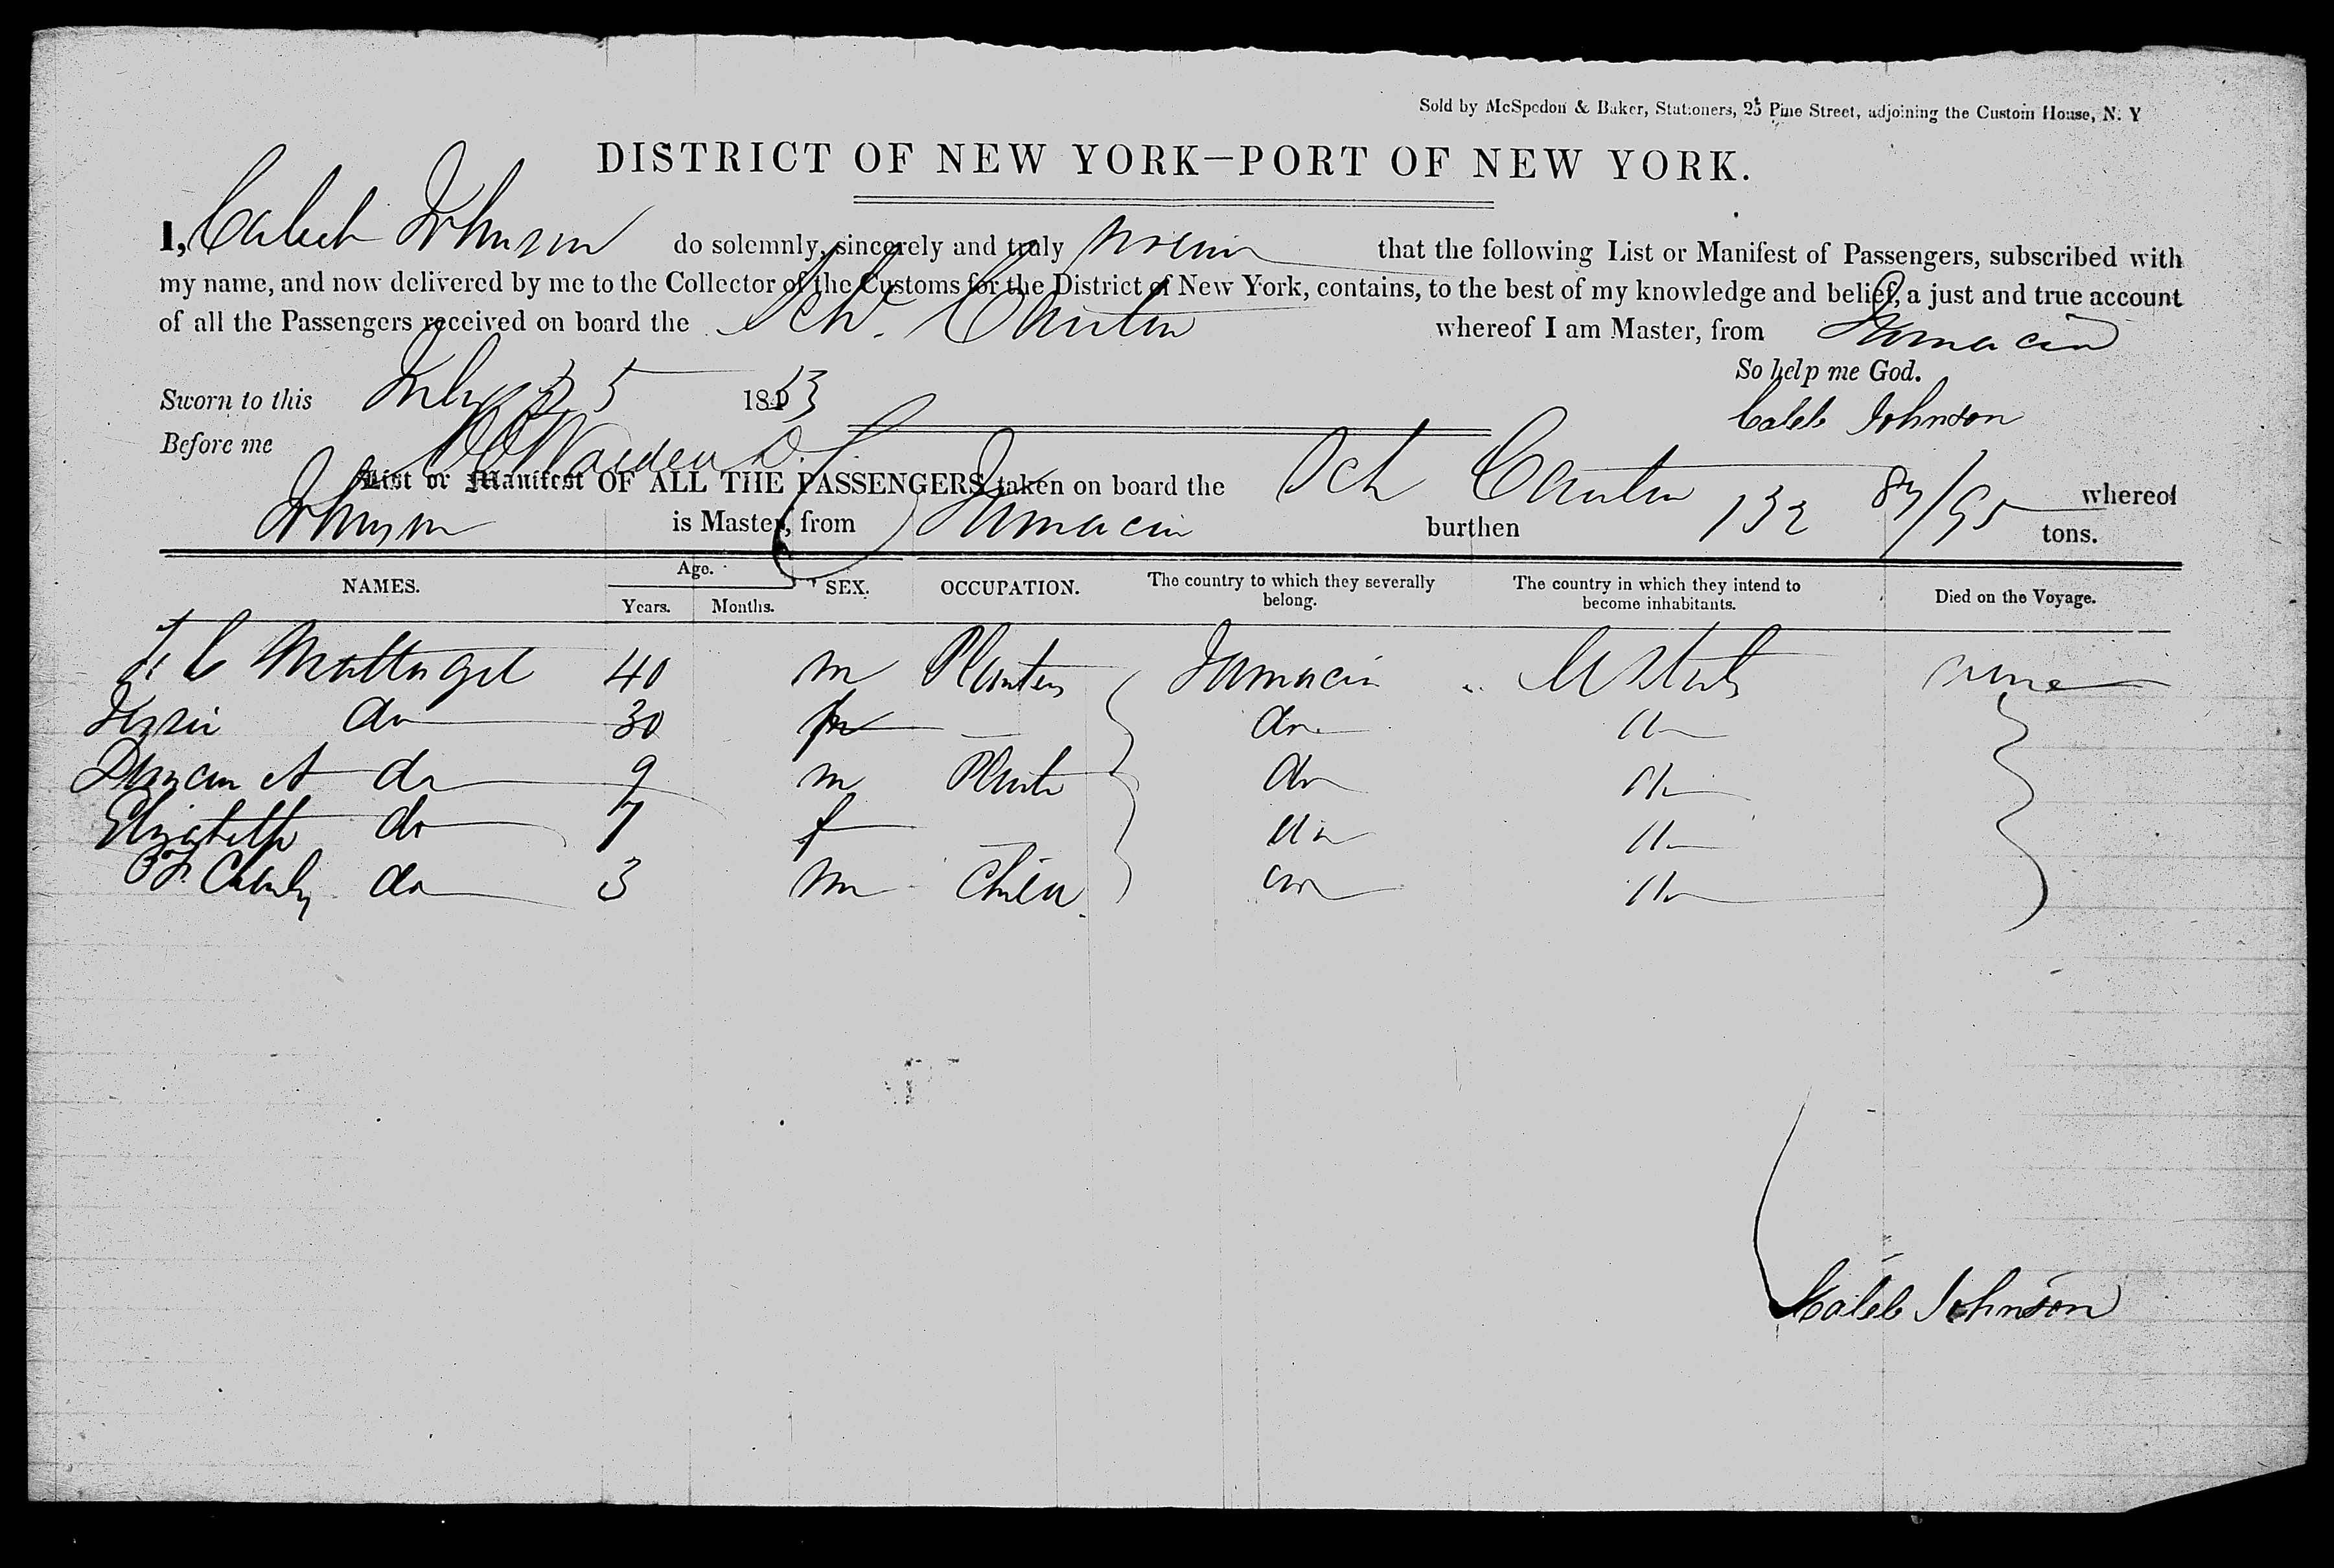 Sold by McSpedon & Baker, Stationers, 25 Pine Street, adjoining the Custom House, N. Y
DISTRICT OF NEW YORK—PORT OF NEW YORK.
I, Caleb Johnson do solemnly, sincerely and truly swear that the following List or Manifest of Passengers, subscribed with
my name, and now delivered by me to the Collector of the Customs for the District of New York, contains, to the best of my knowledge and belief, a just and true account
of all the Passengers received on board the Schr. Canton whereof I am Master, from Jamacia
So help me God.
Sworn to this July 25 1853 Caleb Johnson
Before me
List or Manifest OF ALL THE PASSENGERS taken on board the Sch Canton whereof
Johnson is Master, from Jamacia burthen 132 87/95 tons.
NAMES. Age. Years. Months. SEX. OCCUPATION. The country to which they severally belong. The country in which they intend to become inhabitants. Died on the Voyage.
40 m Planter Jamacia U States none
do 30 f do
Duncan A do 9 m do
Elizabeth do 7 f do
do 3 m Child do
Caleb Johnson